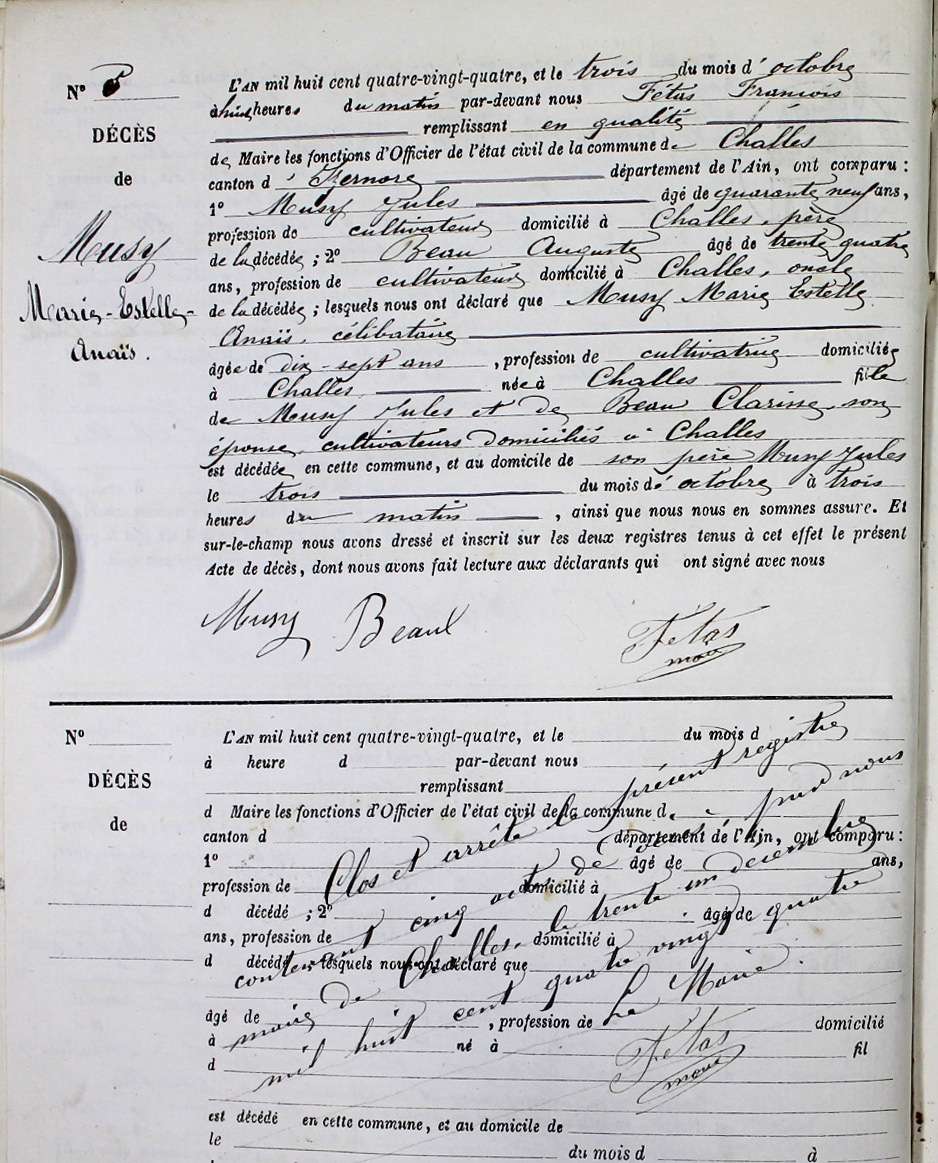 N° 5
DÉCÈS
de
Musy
Marie-Estelle-
Anaïs.
L'AN mil huit cent quatre-vingt-quatre, et le trois du mois d'octobre
à huit heures du matin par-devant nous Fétas François
remplissant en qualité
de Maire les fonctions d'Officier de l'état civil de la commune de Challes
canton d'Izernore département de l'Ain, ont comparu :
1° Musy Jules âgé de quarante neuf ans,
profession de cultivateur domicilié à Challes, père
de la décédée ; 2° Beau Auguste âgé de trente quatre
ans, profession de cultivateur domicilié à Challes, oncle
de la décédée ; lesquels nous ont déclaré que Musy Marie Estelle
Anaïs, célibataire
âgée de dix-sept ans, profession de cultivatrice domiciliée
à Challes née à Challes fille
de Musy Jules et de Beau Clarisse, son
épouse, cultivateurs domiciliés à Challes
est décédée en cette commune, et au domicile de son père Musy Jules
le trois du mois d'octobre à trois
heures du matin, ainsi que nous nous en sommes assuré. Et
sur-le-champ nous avons dressé et inscrit sur les deux registres tenus à cet effet le présent
Acte de décès, dont nous avons fait lecture aux déclarants qui ont signé avec nous
Musy Beau Fétas
maire
N°
DÉCÈS
de
L'AN mil huit cent quatre-vingt-quatre, et le du mois d
à heure d par-devant nous
remplissant
d Maire les fonctions d'Officier de l'état civil de la commune d
canton d département de l'Ain, ont comparu :
1° âgé de ans,
profession de domicilié à
d décédé ; 2° âgé de
ans, profession de domicilié à
d décédé ; lesquels nous ont déclaré que
âgé de , profession de domicilié
à né à fil
d
est décédé en cette commune, et au domicile de
le du mois d à
Clos et arrêté le présent registre
contenant cinq actes de décès, par nous
maire de Challes, le trente un decembre
mil huit cent quatre vingt quatre
Le Maire.
Fétas
maire